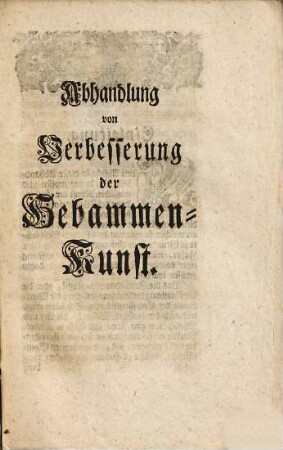 Abhandlung
von
Verbesserung
der
Hebammen-
Kunst.